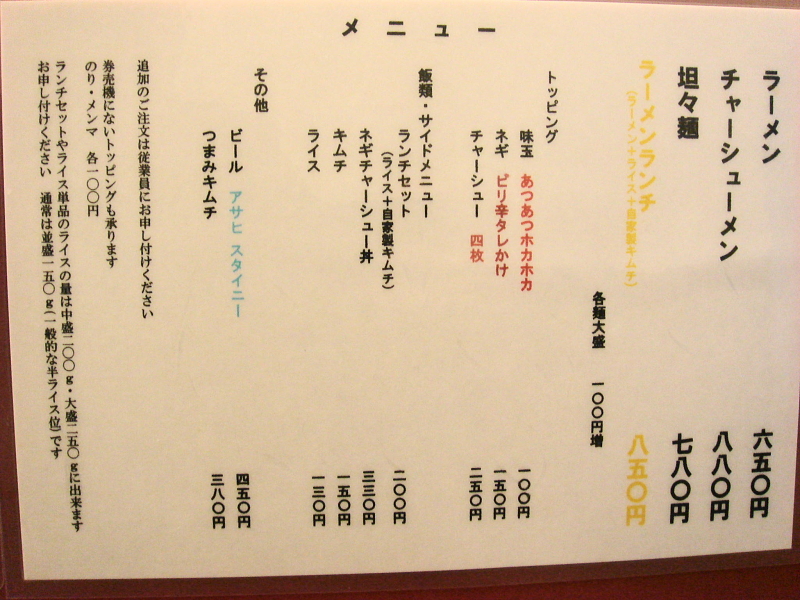 メニュー
ラーメン 六五〇円
チャーシューメン 八八〇円
坦々麺 七八〇円
ラーメンランチ 八五〇円
(ラーメン+ライス+自家製キムチ)
各麺大盛 一〇〇円増
トッピング
味玉 あつあつホカホカ 一〇〇円
ネギ ピリ辛タレかけ 一五〇円
チャーシュー 四枚 二五〇円
飯類・サイドメニュー
ランチセット 二〇〇円
(ライス+自家製キムチ)
ネギチャーシュー丼 三三〇円
キムチ 一五〇円
ライス 一三〇円
その他
ビール アサヒ スタイニー 四五〇円
つまみキムチ 三八〇円
追加のご注文は従業員にお申し付けください
券売機にないトッピングも承ります
のり・メンマ 各一〇〇円
ランチセットやライス単品のライスの量は中盛二〇〇g・大盛二五〇gに出来ます
お申し付けください 通常は並盛一五〇g(一般的な半ライス位)です